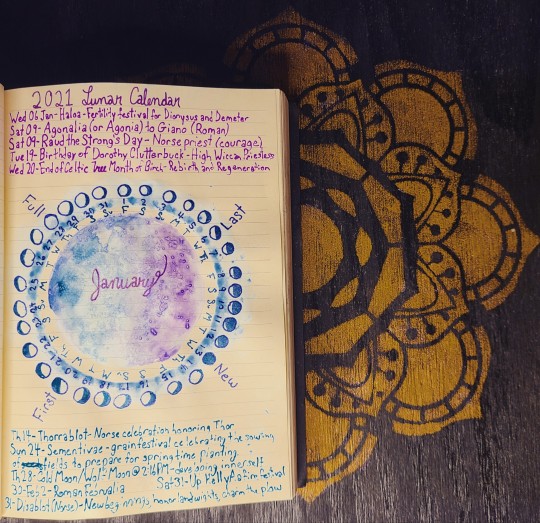 2021 Lunar Calendar
Wed 06 Jan-Haloa-Fertility festival for Dionysus and Demeter
Sat 09-Agonalia (or Agonia) to Giano (Roman)
Sat 09-Raud the Strong's Day-Norse priest (courage)
Tue 19-Birthday of Dorothy Clutterbuck-High Wiccan Priestess
Wed 20-End of Celtic Tree Month of Birch-Rebirth and Regeneration
Full
Last
January
First
New
Th 14-Thorrablot-Norse celebration honoring Thor
Sun 24-Sementivae-grain festival celebrating the sowing
of fields to prepare for spring time planting
Th 28-Cold Moon/Wolf Moon @ 2:16PM-developing inner self
30-Feb 2-Roman Februalia
Sat 31-Up Helly Aa fire festival
31-Disablot (Norse)-New beginnings, honor landwights, charm the plow